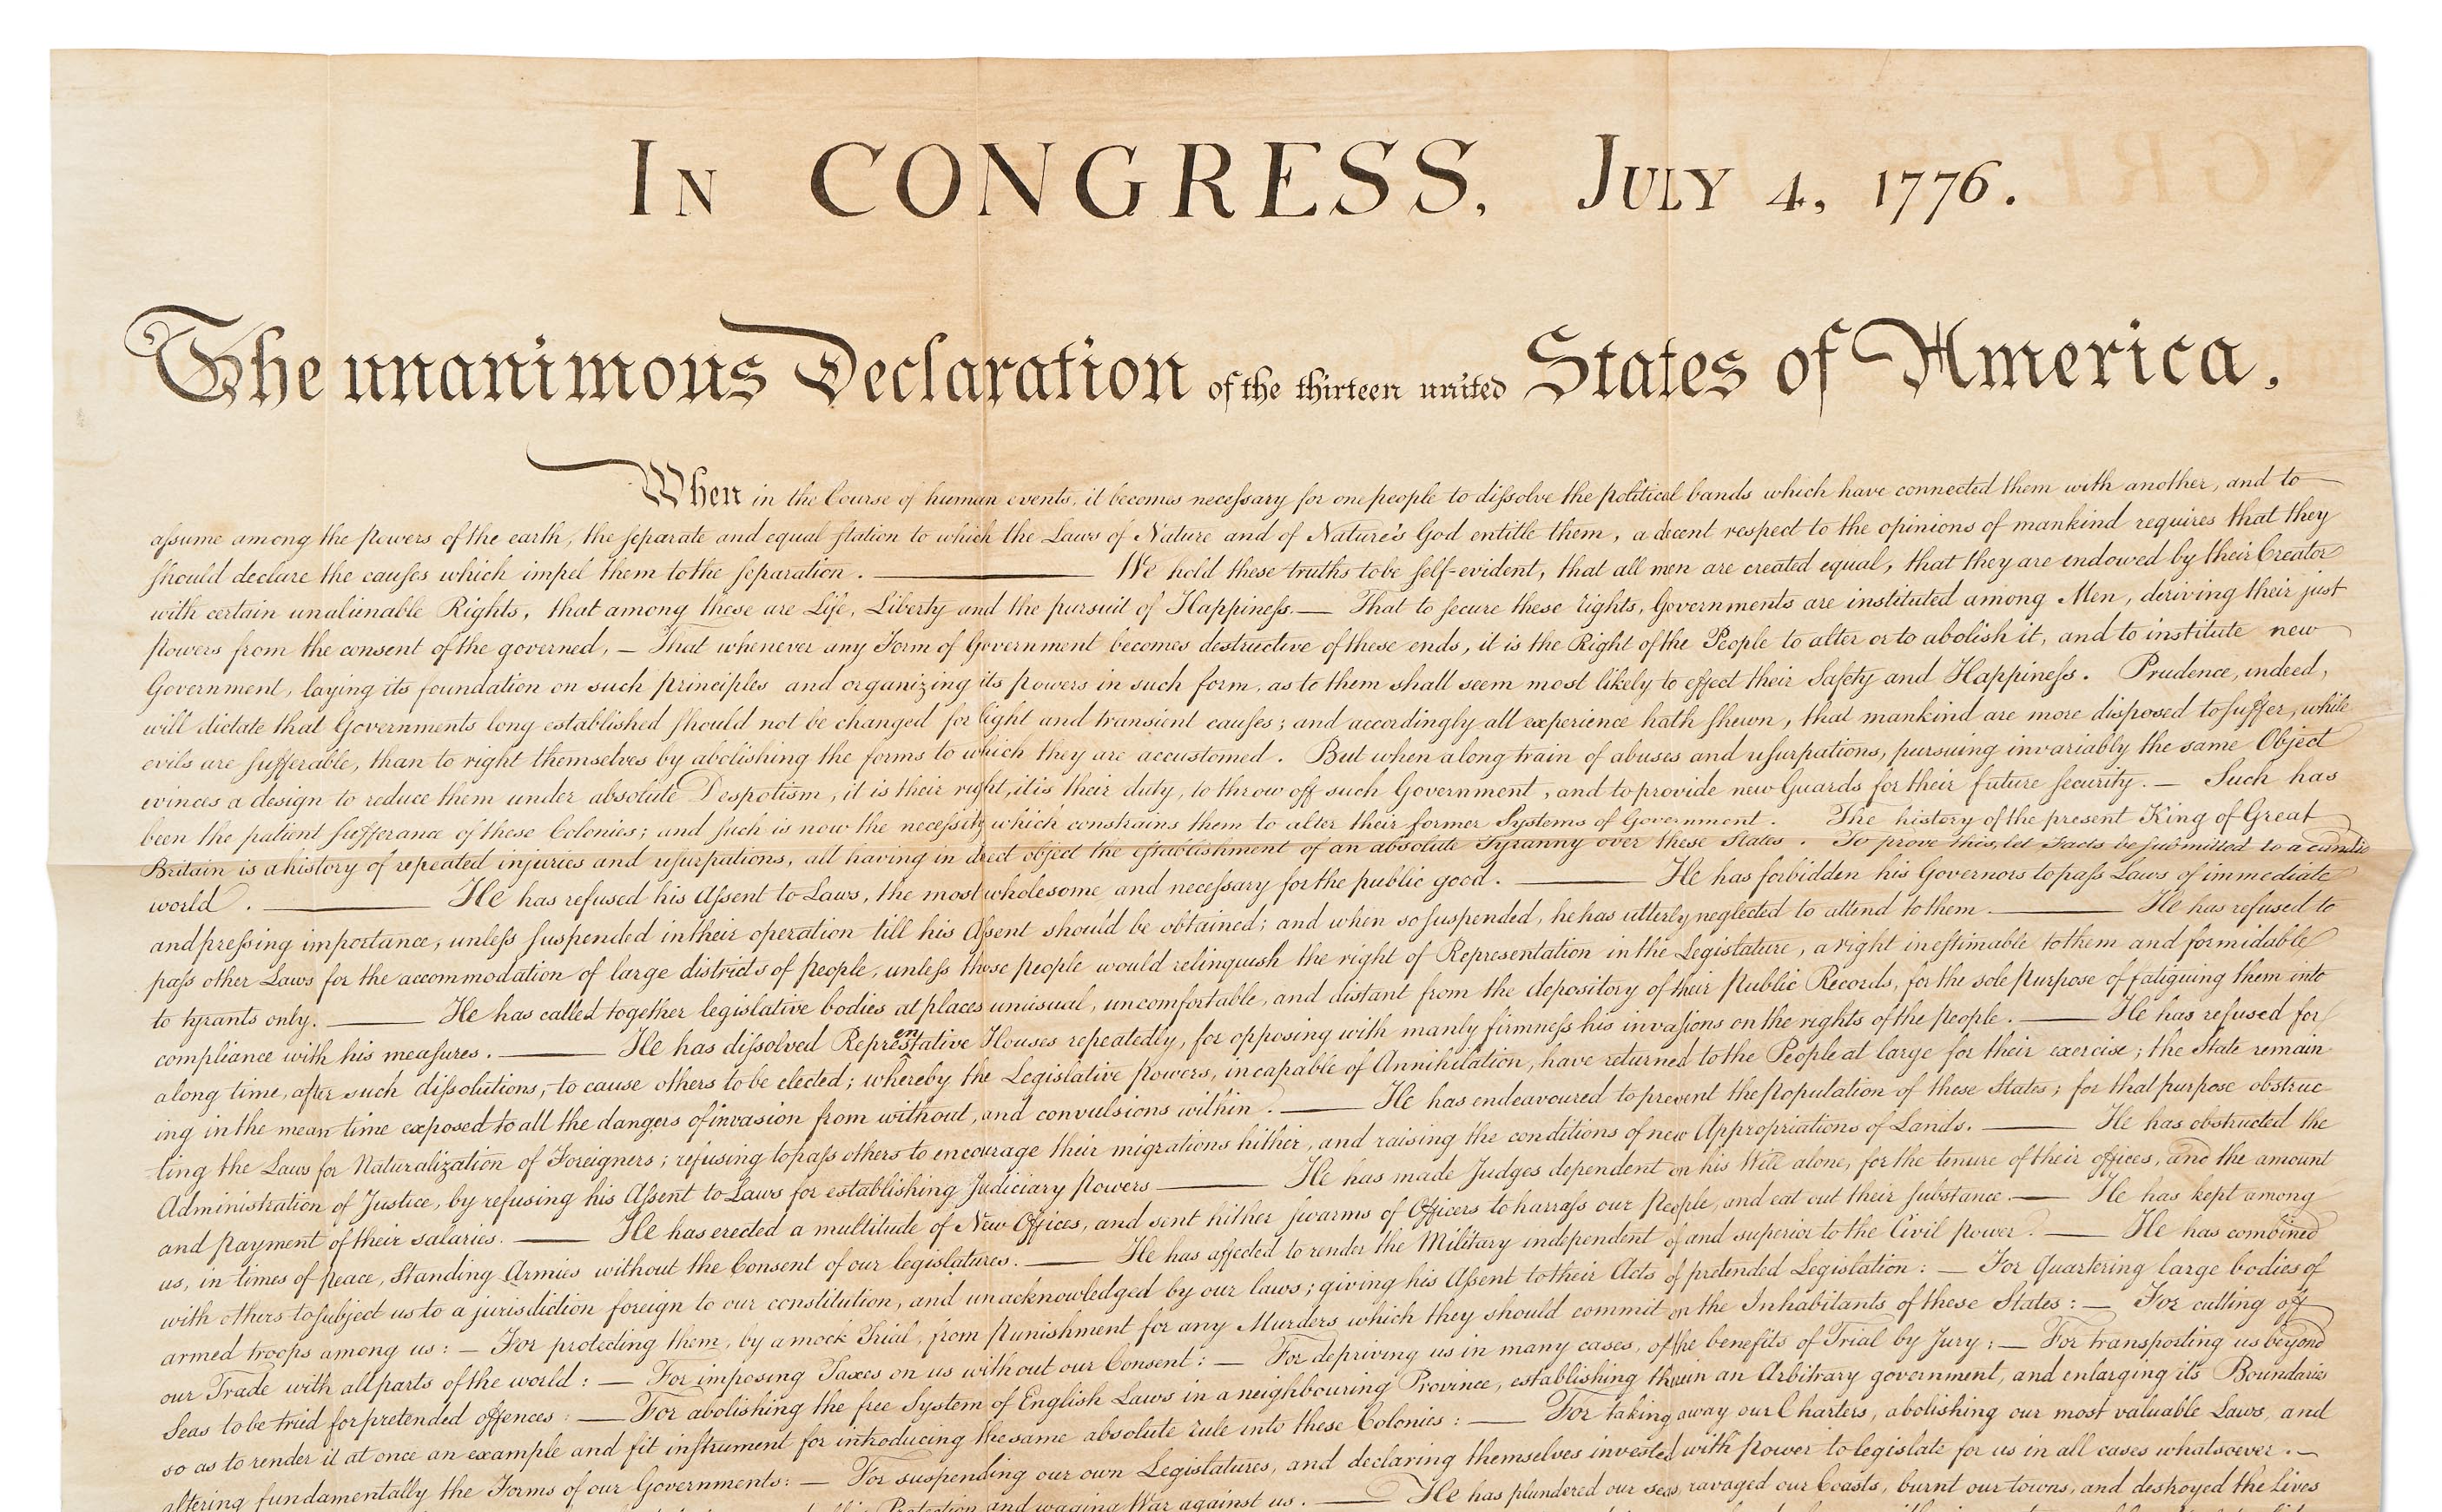 In CONGRESS, July 4, 1776.
The unanimous Declaration of the thirteen united States of America.
When in the Course of human events, it becomes necessary for one people to dissolve the political bands which have connected them with another, and to
assume among the powers of the earth, the separate and equal station to which the Laws of Nature and of Nature's God entitle them, a decent respect to the opinions of mankind requires that they
should declare the causes which impel them to the separation. — We hold these truths to be self-evident, that all men are created equal, that they are endowed by their Creator
with certain unalienable Rights, that among these are Life, Liberty and the pursuit of Happiness. — That to secure these rights, Governments are instituted among Men, deriving their just
powers from the consent of the governed, — That whenever any Form of Government becomes destructive of these ends, it is the Right of the People to alter or to abolish it, and to institute new
Government, laying its foundation on such principles and organizing its powers in such form, as to them shall seem most likely to effect their Safety and Happiness. Prudence, indeed,
will dictate that Governments long established should not be changed for light and transient causes; and accordingly all experience hath shewn, that mankind are more disposed to suffer, while
evils are sufferable, than to right themselves by abolishing the forms to which they are accustomed. But when a long train of abuses and usurpations, pursuing invariably the same Object
evinces a design to reduce them under absolute Despotism, it is their right, it is their duty, to throw off such Government, and to provide new Guards for their future security. — Such has
been the patient sufferance of these Colonies; and such is now the necessity which constrains them to alter their former Systems of Government. The history of the present King of Great
Britain is a history of repeated injuries and usurpations, all having in direct object the establishment of an absolute Tyranny over these States. To prove this, let Facts be submitted to a candid
world. — He has refused his Assent to Laws, the most wholesome and necessary for the public good. — He has forbidden his Governors to pass Laws of immediate
and pressing importance, unless suspended in their operation till his Assent should be obtained; and when so suspended, he has utterly neglected to attend to them. — He has refused to
pass other Laws for the accommodation of large districts of people, unless those people would relinquish the right of Representation in the Legislature, a right inestimable to them and formidable
to tyrants only. — He has called together legislative bodies at places unusual, uncomfortable, and distant from the depository of their Public Records, for the sole purpose of fatiguing them into
compliance with his measures. — He has dissolved Representative Houses repeatedly, for opposing with manly firmness his invasions on the rights of the people. — He has refused for
a long time, after such dissolutions, to cause others to be elected; whereby the Legislative powers, incapable of Annihilation, have returned to the People at large for their exercise; the State remain
ing in the mean time exposed to all the dangers of invasion from without, and convulsions within. — He has endeavoured to prevent the population of these States; for that purpose obstruc
ting the Laws for Naturalization of Foreigners; refusing to pass others to encourage their migrations hither, and raising the conditions of new Appropriations of Lands. — He has obstructed the
Administration of Justice, by refusing his Assent to Laws for establishing Judiciary powers — He has made Judges dependent on his Will alone, for the tenure of their offices, and the amount
and payment of their salaries. — He has erected a multitude of New Offices, and sent hither swarms of Officers to harrass our People, and eat out their substance. — He has kept among
us, in times of peace, Standing Armies without the Consent of our legislatures. — He has affected to render the Military independent of and superior to the Civil power. — He has combined
with others to subject us to a jurisdiction foreign to our constitution, and unacknowledged by our laws; giving his Assent to their Acts of pretended Legislation: — For Quartering large bodies of
armed troops among us: — For protecting them, by a mock Trial, from punishment for any Murders which they should commit on the Inhabitants of these States: — For cutting off
our Trade with all parts of the world: — For imposing Taxes on us without our Consent: — For depriving us in many cases, of the benefits of Trial by Jury: — For transporting us beyond
Seas to be tried for pretended offences: — For abolishing the free System of English Laws in a neighbouring Province, establishing therein an Arbitrary government, and enlarging its Boundaries
so as to render it at once an example and fit instrument for introducing the same absolute rule into these Colonies: — For taking away our Charters, abolishing our most valuable Laws, and
altering fundamentally the Forms of our Governments: — For suspending our own Legislatures, and declaring themselves invested with power to legislate for us in all cases whatsoever. —
Protection and waging War against us. — He has plundered our seas, ravaged our Coasts, burnt our towns, and destroyed the Lives